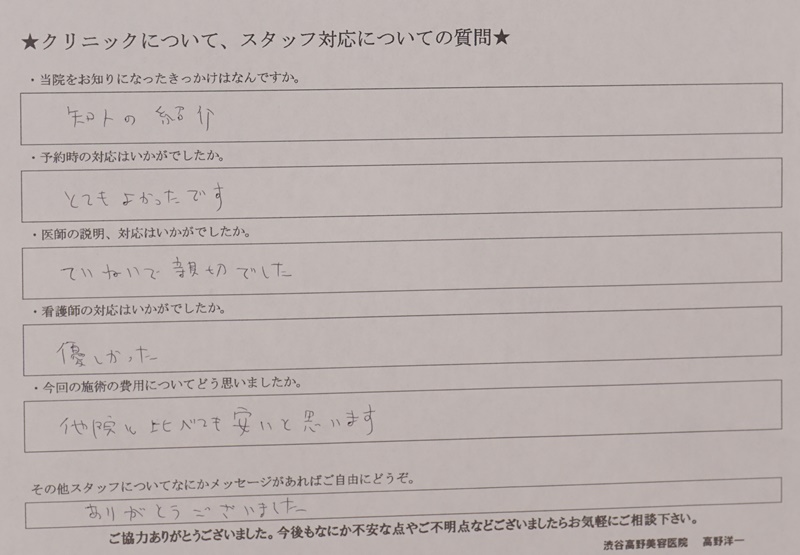 ★クリニックについて、スタッフ対応についての質問★
・当院をお知りになったきっかけはなんですか。
知人の紹介
・予約時の対応はいかがでしたか。
とてもよかったです
・医師の説明、対応はいかがでしたか。
ていねいで親切でした
・看護師の対応はいかがでしたか。
優しかった
・今回の施術の費用についてどう思いましたか。
他院に比べても安いと思います
その他スタッフについてなにかメッセージがあればご自由にどうぞ。
ありがとうございました
ご協力ありがとうございました。今後もなにか不安な点やご不明点などございましたらお気軽にご相談下さい。
渋谷高野美容医院　高野洋一